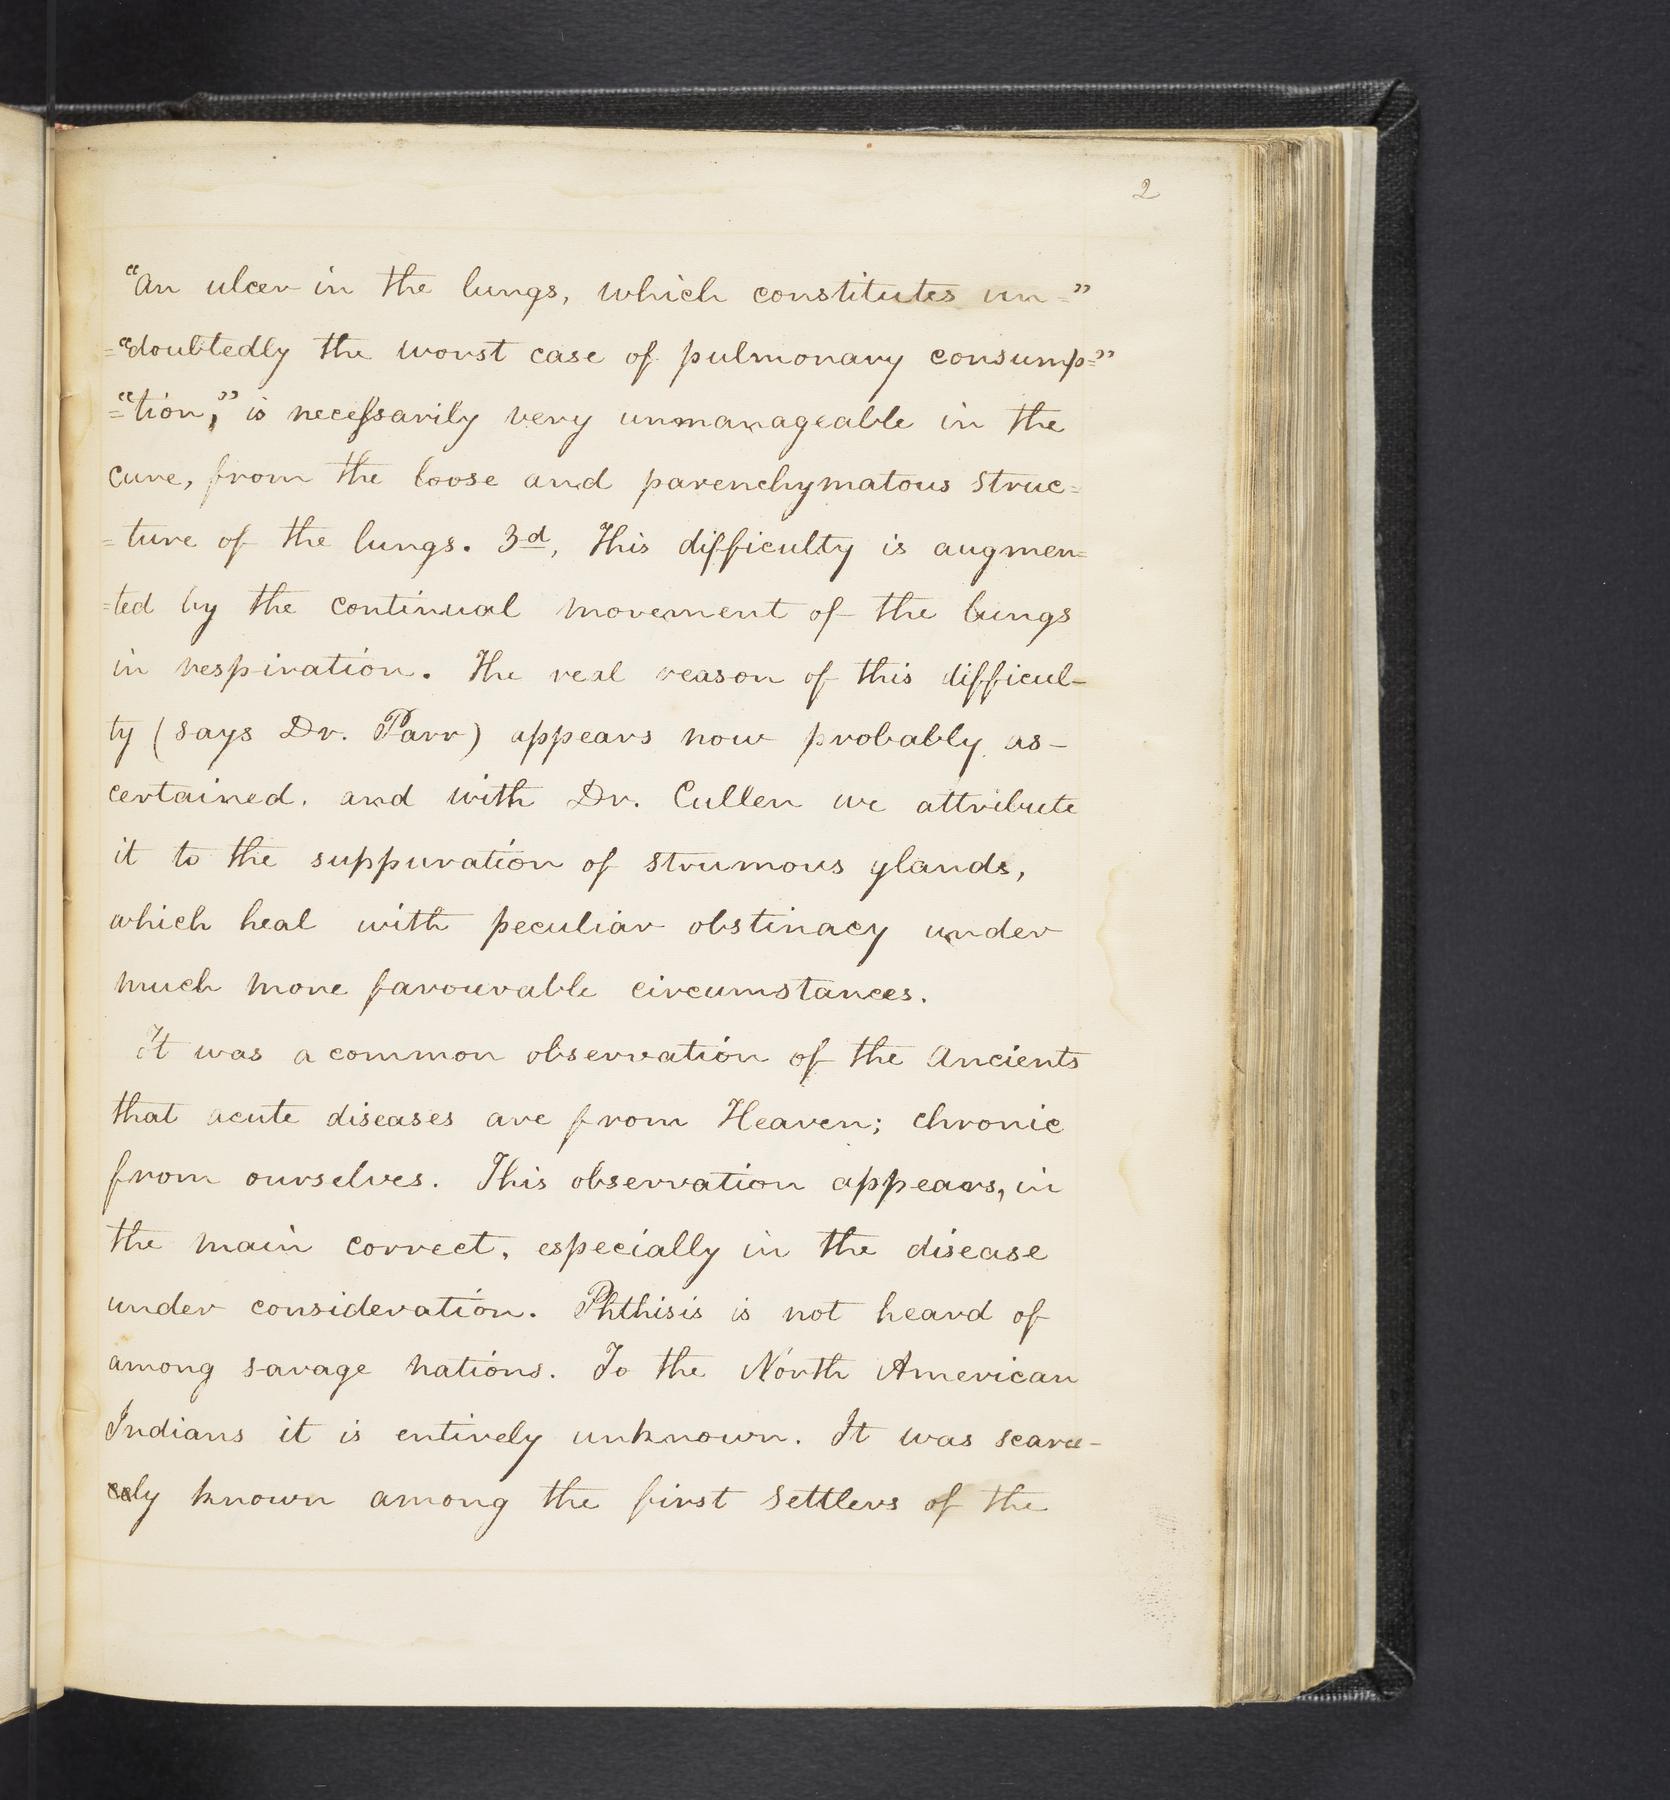 2
"an ulcer in the lungs, which constitutes un-"
="doubtedly the worst case of pulmonary consump="
="tion," is necessarily very unmanageable in the
cure, from the loose and parenchymatous struc=
=ture of the lungs. 3d, This difficulty is augmen=
=ted by the continual movement of the lungs
in respiration. The real reason of this difficul-
ty (says Dr. Parr) appears now probably as-
certained, and with Dr. Cullen we attribute
it to the suppuration of strumous glands,
which heal with peculiar obstinacy under
much more favourable circumstances.
It was a common observation of the Ancients
that acute diseases are from Heaven; chronic
from ourselves. This observation appears, in
the main correct, especially in the disease
under consideration. Phthisis is not heard of
among savage nations. To the North American
Indians it is entirely unknown. It was scarce-
ly known among the first settlers of the